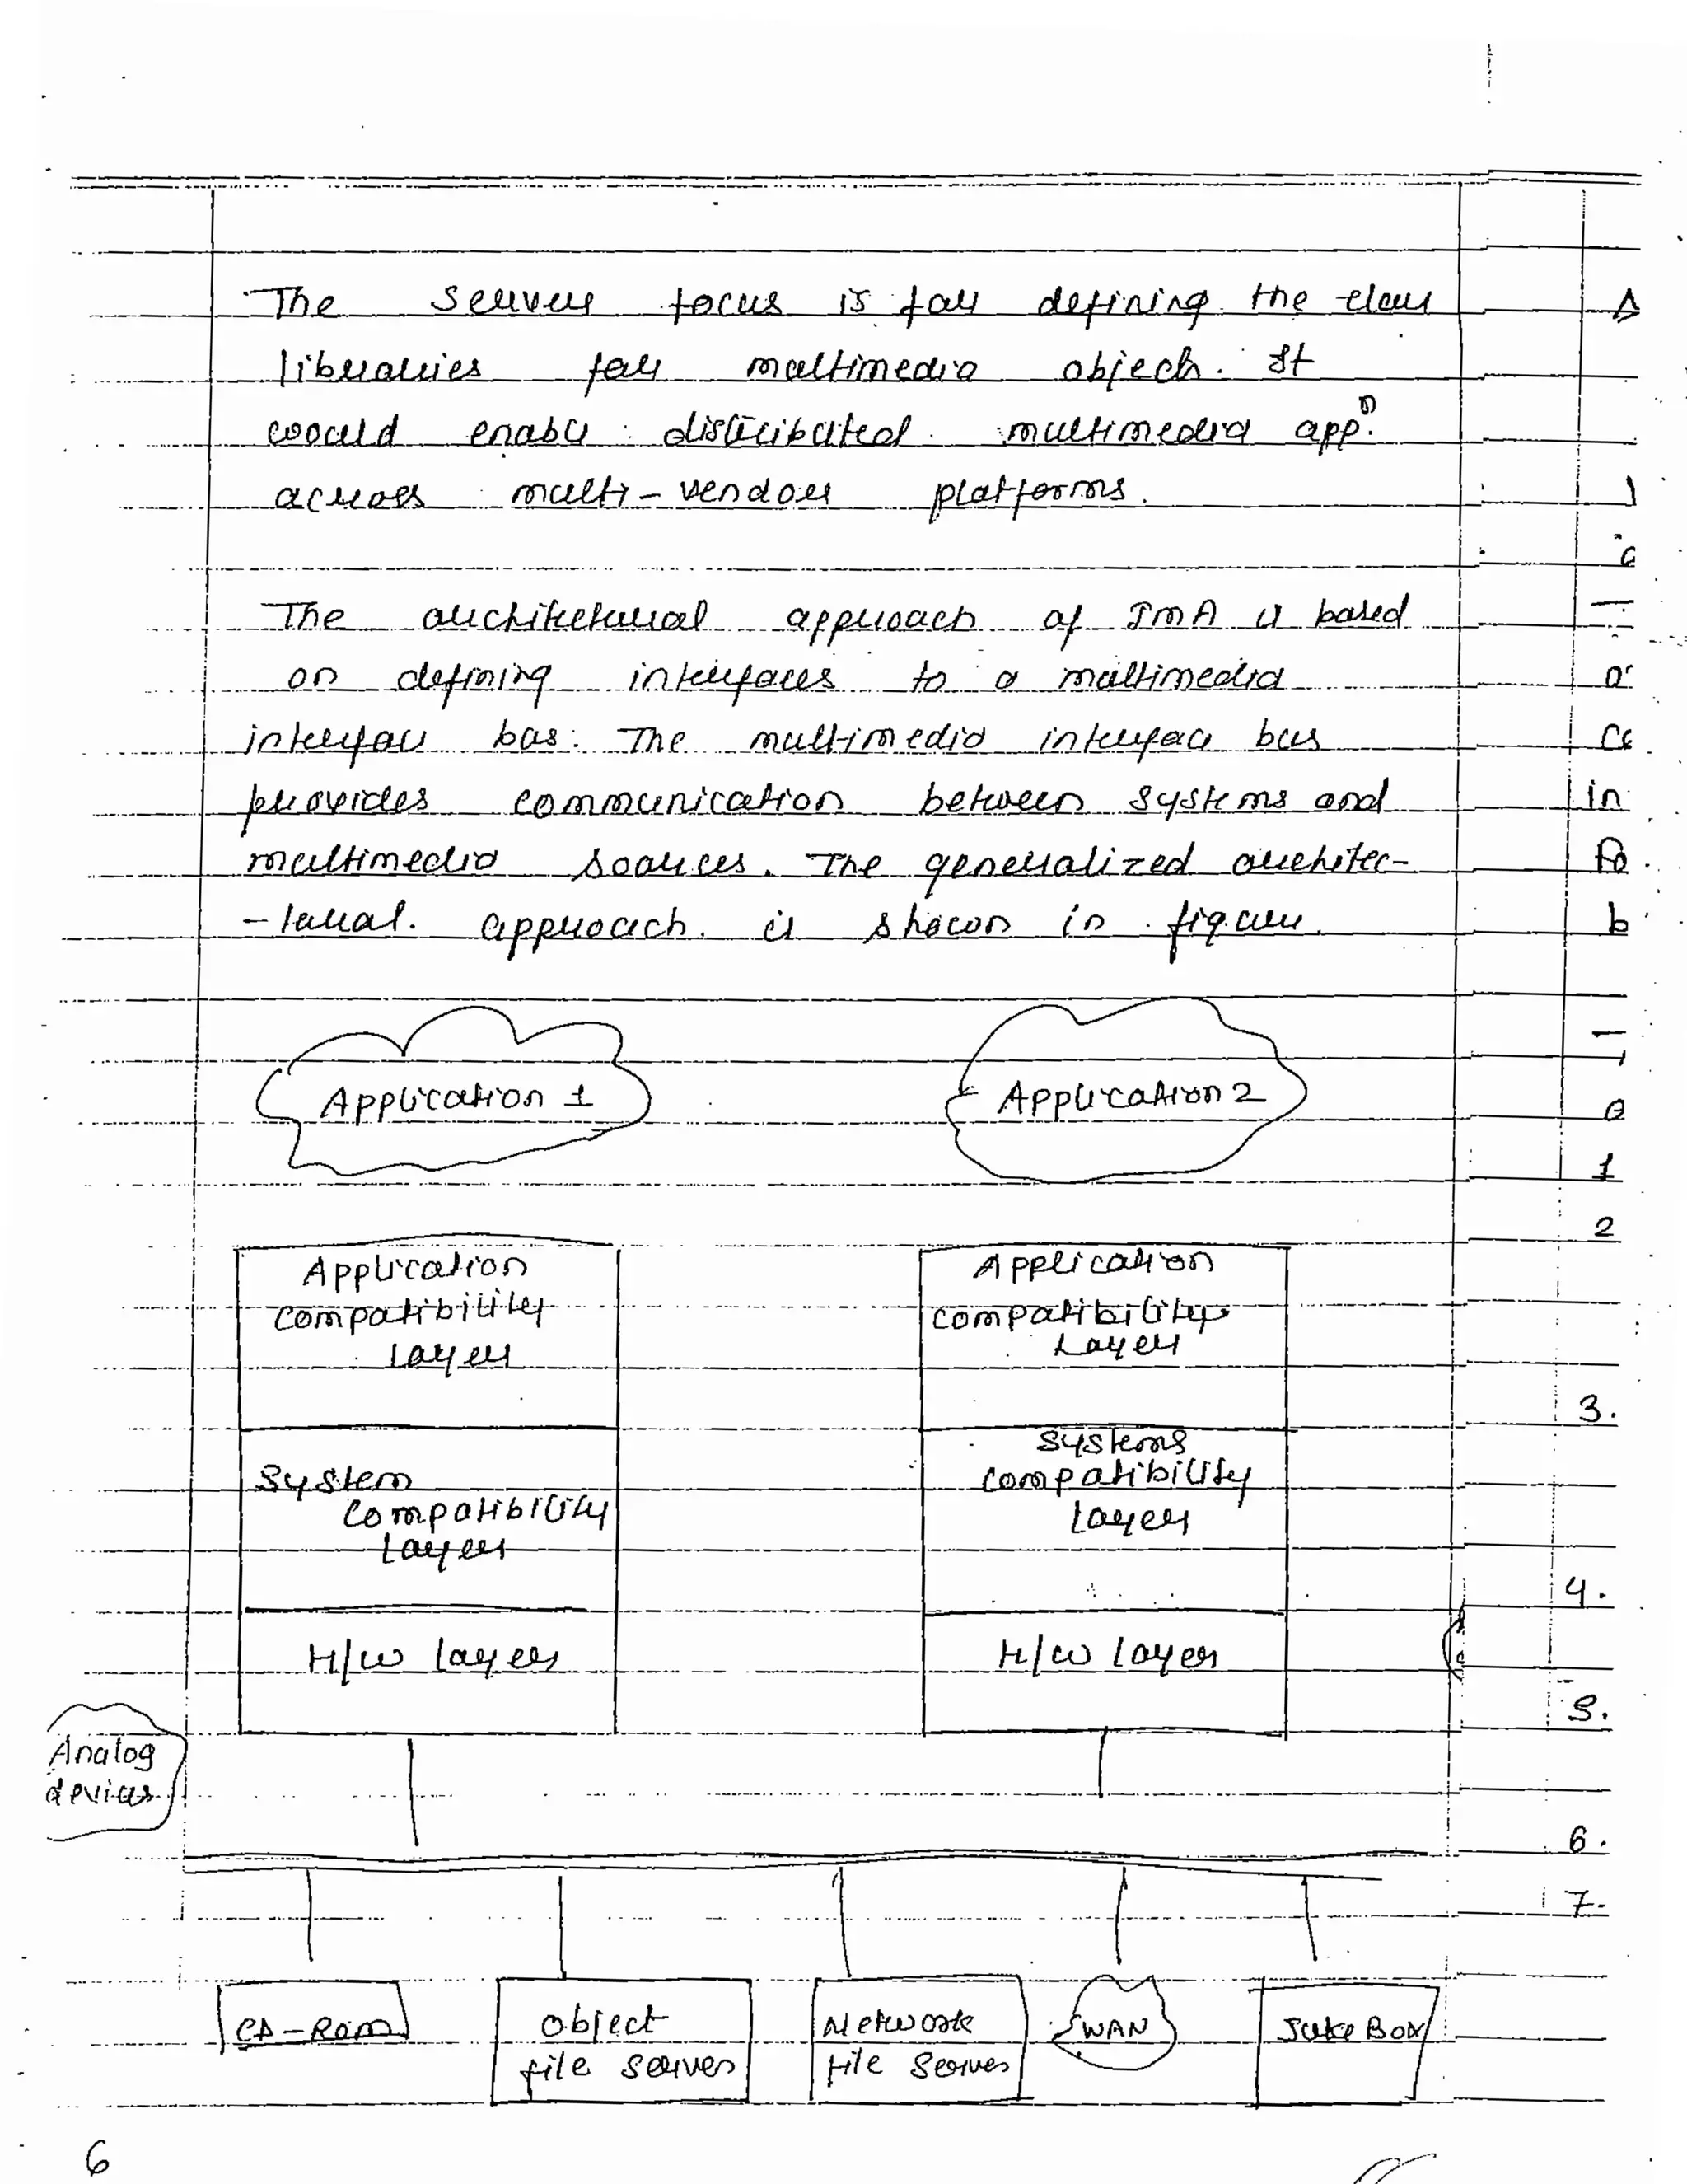 The Server focus is for defining the class
libraries for multimedia objects. It
would enable distributed multimedia appⁿ.
across multi-vendor platforms.
The architectural approach of IMA is based
on defining interfaces to a multimedia
interface bus. The multimedia interface bus
provides communication between systems and
multimedia sources. The generalized architec-
-tural. approach. is shown in figure.
Application 1
Application 2
Application
compatibility
layer
Application
compatibility
Layer
System
Compatibility
Layer
Systems
compatibility
Layer
H/W layer
H/W layer
Analog
devices
CD-ROM
Object
file server
Network
file server
WAN
Juke Box
6
1
2
3.
4.
5.
6.
7.
in
b